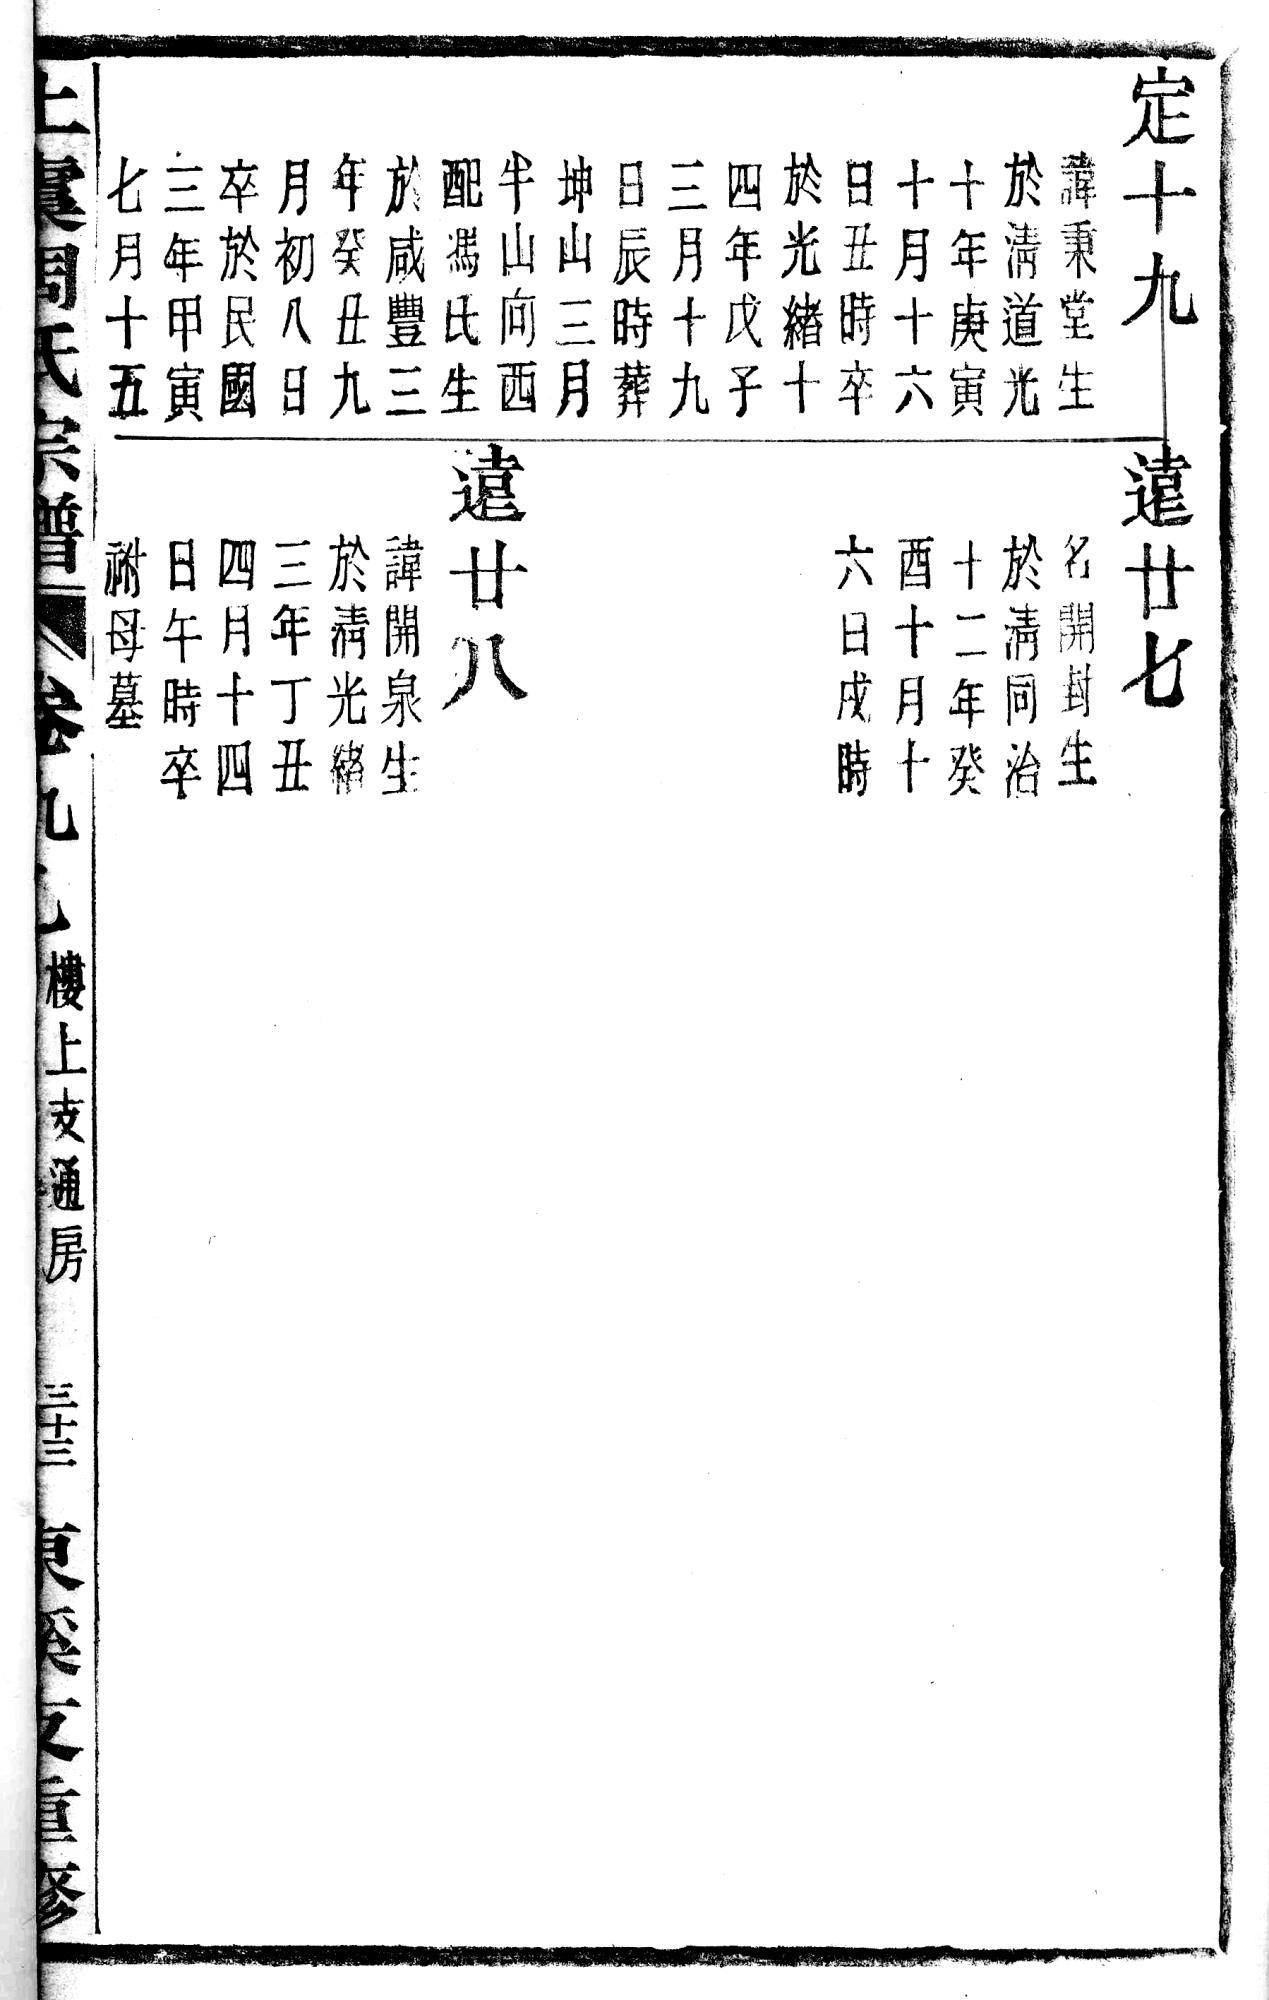 定十九
諱秉堂生
於清道光
十年庚寅
十月十六
日丑時卒
於光緒十
四年戊子
三月十九
日辰時葬
坤山三月
牛山向西
配馮氏生
於咸豐三
年癸丑九
月初八日
卒於民國
三年甲寅
七月十五
遠廿七
名開封生
於清同治
十二年癸
酉十月十
六日戌時
遠廿八
諱開泉生
於清光緒
三年丁丑
四月十四
日午時卒
祔母墓
上虞周氏宗譜
卷九
樓上支通房
三十三
重修